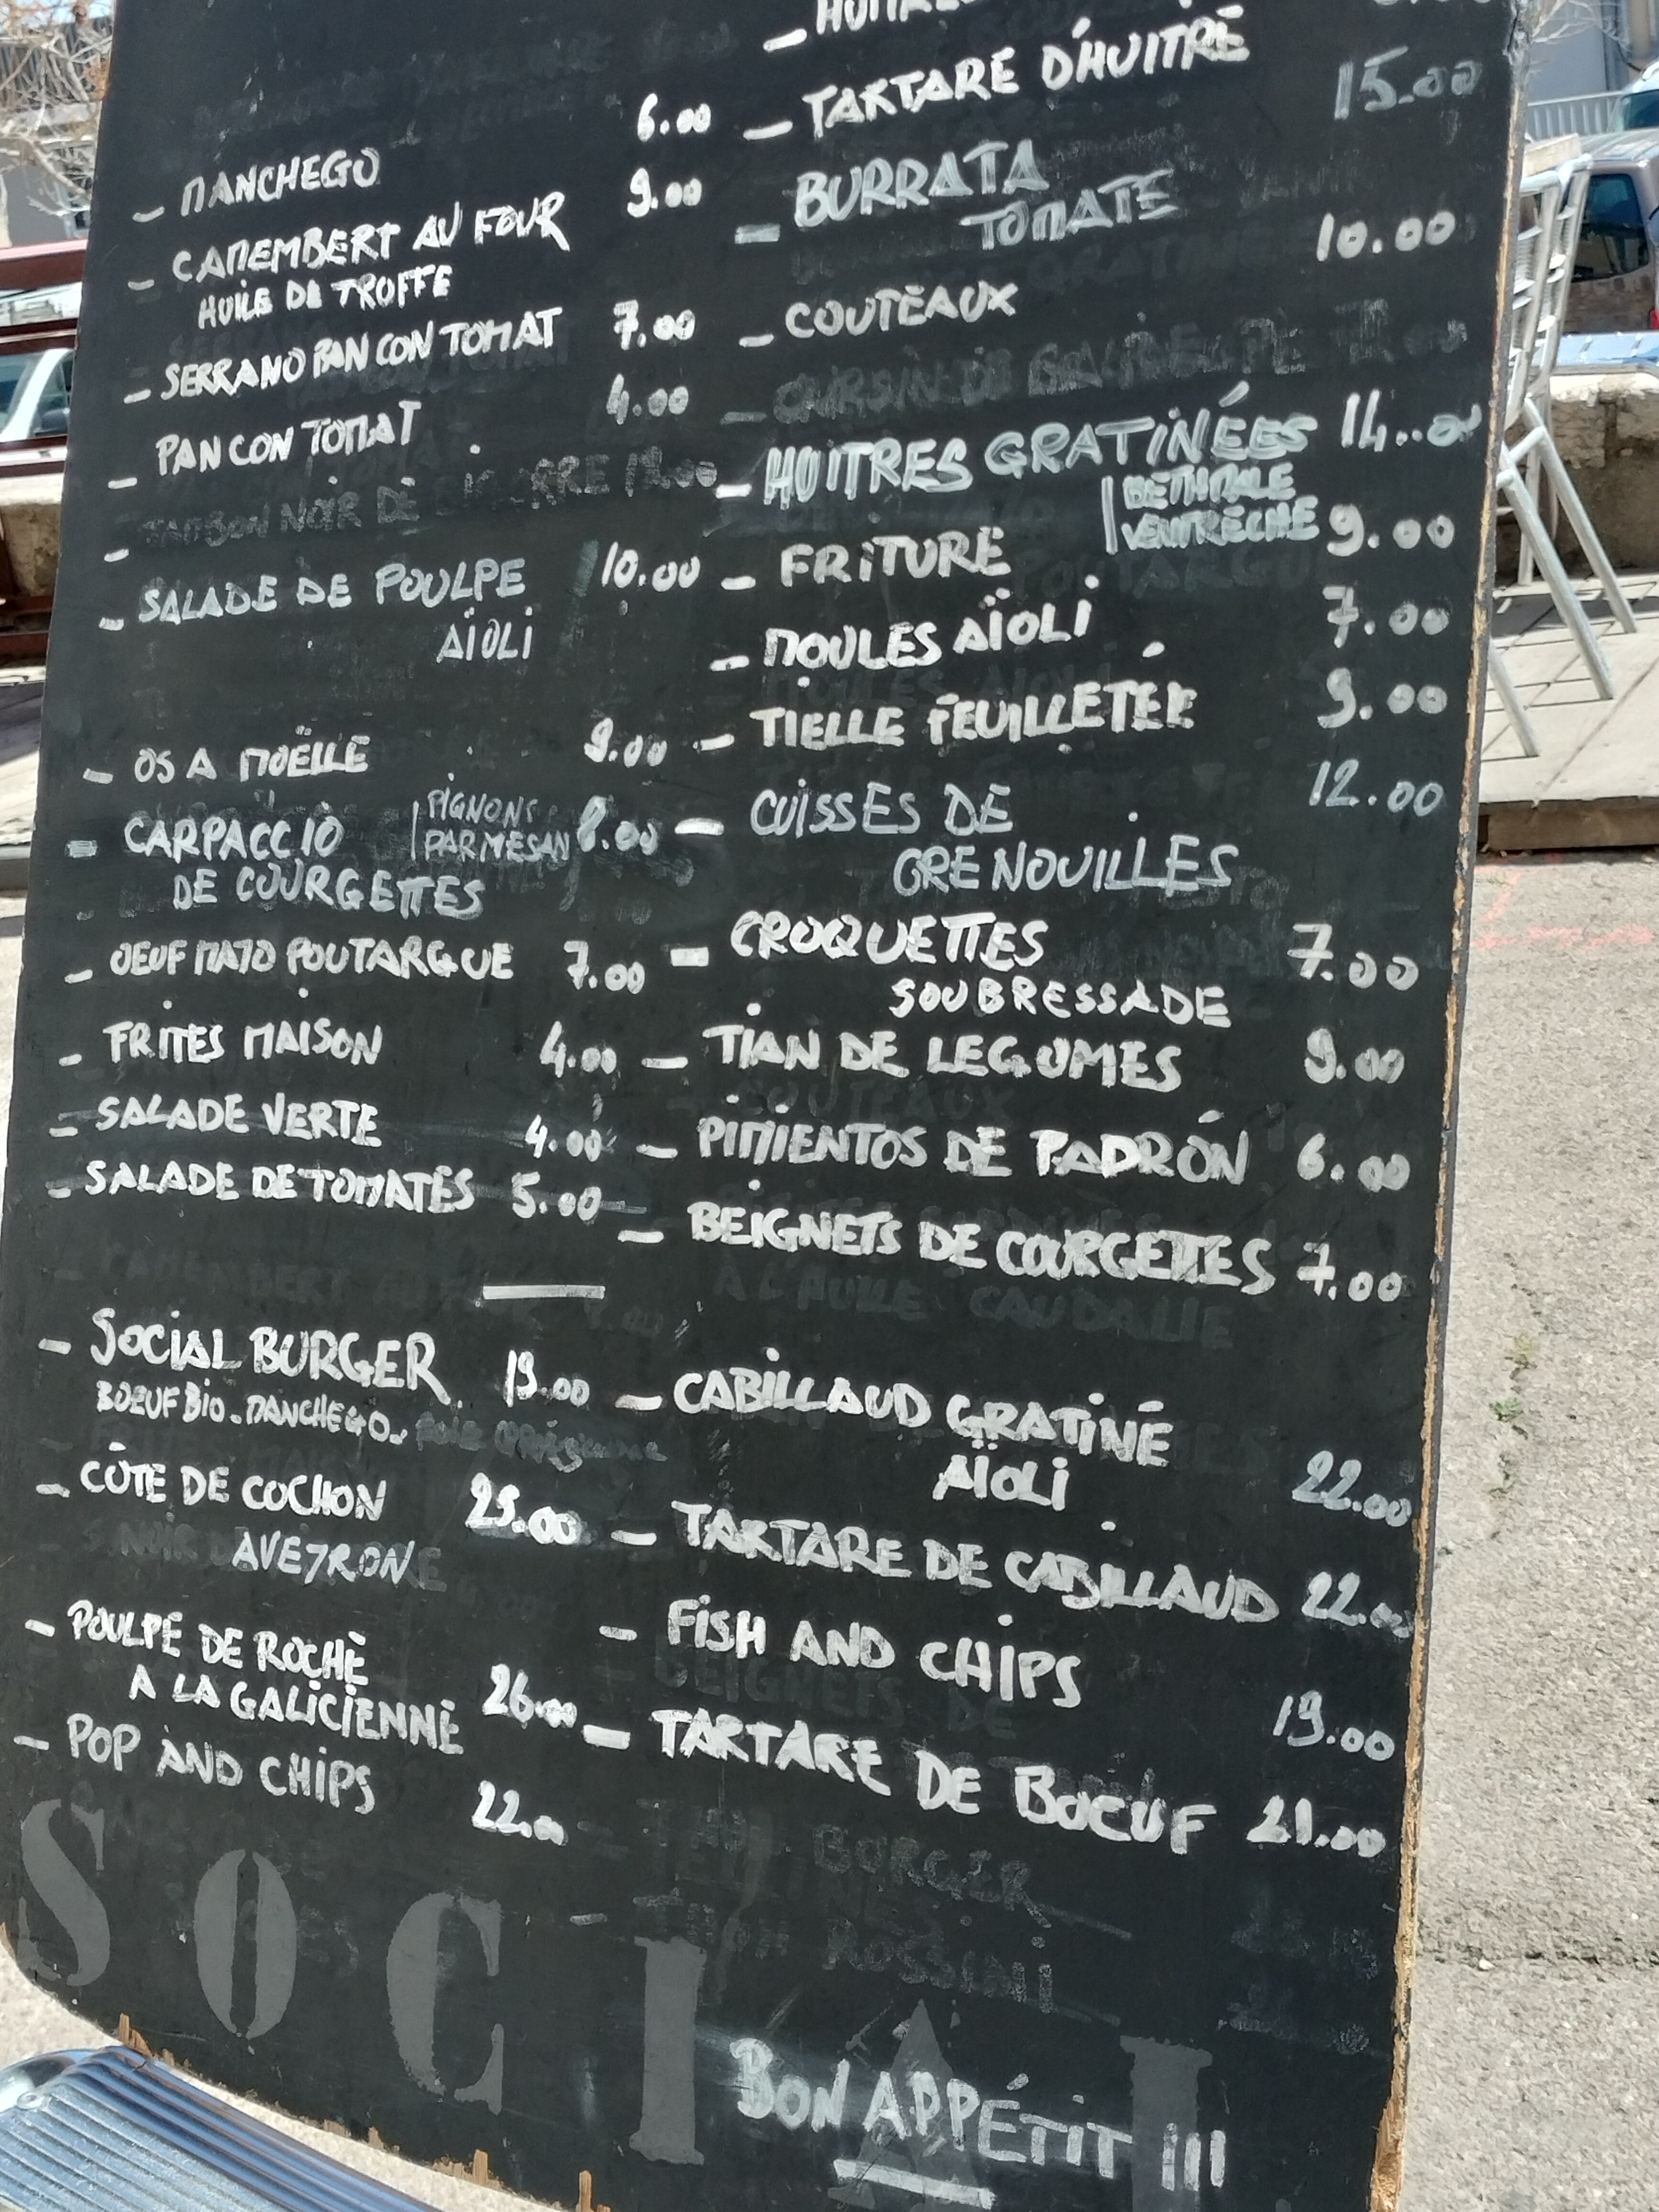 TARTARE D'HUITRE
- MANCHEGO 6.00
- CAMEMBERT AU FOUR 9.00
HUILE DE TROFFE
- SERRANO PAN CON TOMAT 7.00
- PAN CON TOMAT 4.00
- SALADE DE POULPE 10.00
AÏOLI
- OS A MOËLLE 9.00
- CARPACCIO | PIGNONS 8.00
PARMESAN
DE COURGETTES
- OEUF MAYO POUTARGUE 7.00
- FRITES MAISON 4.00
- SALADE VERTE 4.00
- SALADE DE TOMATES 5.00
- SOCIAL BURGER 19.00
BOEUF BIO - MANCHEGO -
- CÔTE DE COCHON 25.00
AVEYRON
- POULPE DE ROCHE
A LA GALICIENNE 26.00
- POP AND CHIPS 22.00
- BURRATA 15.00
TOMATE
- COUTEAUX 10.00
- HUITRES GRATINÉES 14.00
BETHMALE
VENTRÈCHE
- FRITURE 9.00
- MOULES AÏOLI 7.00
- TIELLE FEUILLETÉE 9.00
- CUISSES DE 12.00
GRENOUILLES
- CROQUETTES 7.00
SOUBRESSADE
- TIAN DE LEGUMES 9.00
- PIMIENTOS DE PADRÓN 6.00
- BEIGNETS DE COURGETTES 7.00
- CABILLAUD GRATINÉ
AÏOLI 22.00
- TARTARE DE CABILLAUD 22.00
- FISH AND CHIPS 19.00
- TARTARE DE BOEUF 21.00
SOCIAL
BON APPÉTIT !!!